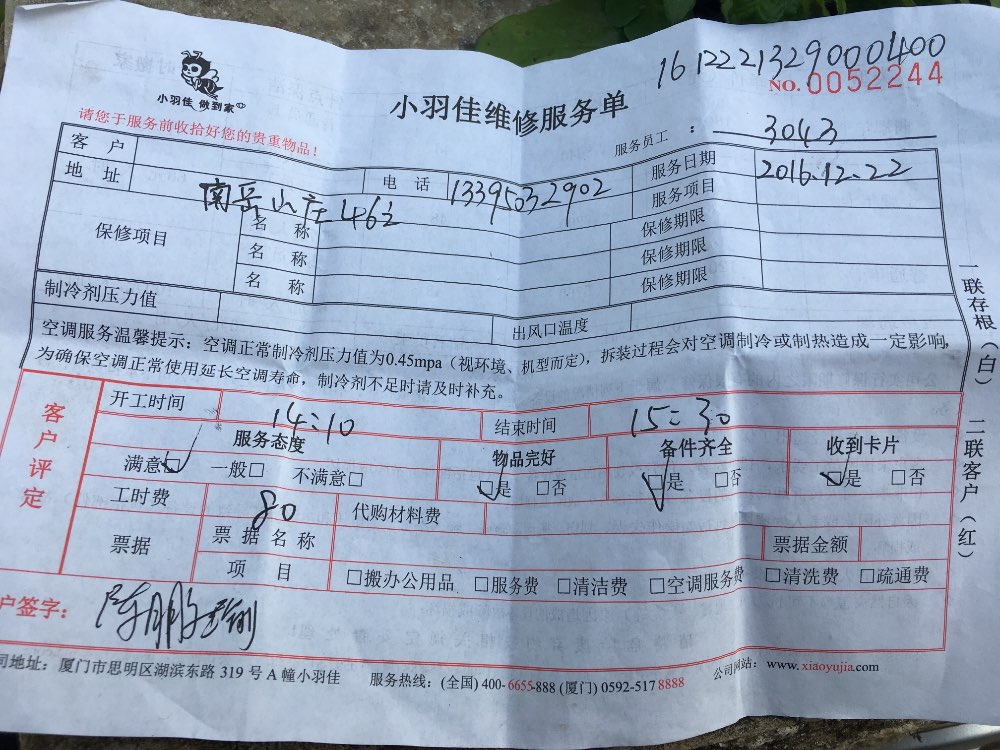 1612221329000400
NO. 0052244
小羽佳 做到家
小羽佳维修服务单
请您于服务前收拾好您的贵重物品！
服务员工 ： 3043
客 户 电 话 13395032902 服务日期 2016.12.22
地 址 南岳山庄462 服务项目
保修项目 名 称 保修期限
名 称 保修期限
名 称 保修期限
制冷剂压力值 出风口温度
空调服务温馨提示：空调正常制冷剂压力值为0.45mpa（视环境、机型而定），拆装过程会对空调制冷或制热造成一定影响，
为确保空调正常使用延长空调寿命，制冷剂不足时请及时补充。
客户评定
开工时间 14:10 结束时间 15:30
服务态度 物品完好 备件齐全 收到卡片
满意□ 一般□ 不满意□ □是 □否 □是 □否 □是 □否
工时费 80 代购材料费
票据 票据名称 票据金额
项 目 □搬办公用品 □服务费 □清洁费 □空调服务费 □清洗费 □疏通费
户签字：
司地址：厦门市思明区湖滨东路 319 号 A 幢小羽佳 服务热线：(全国) 400-6655-888 (厦门) 0592-517 8888 公司网站：www.xiaoyujia.com
一联存根（白） 二联客户（红）